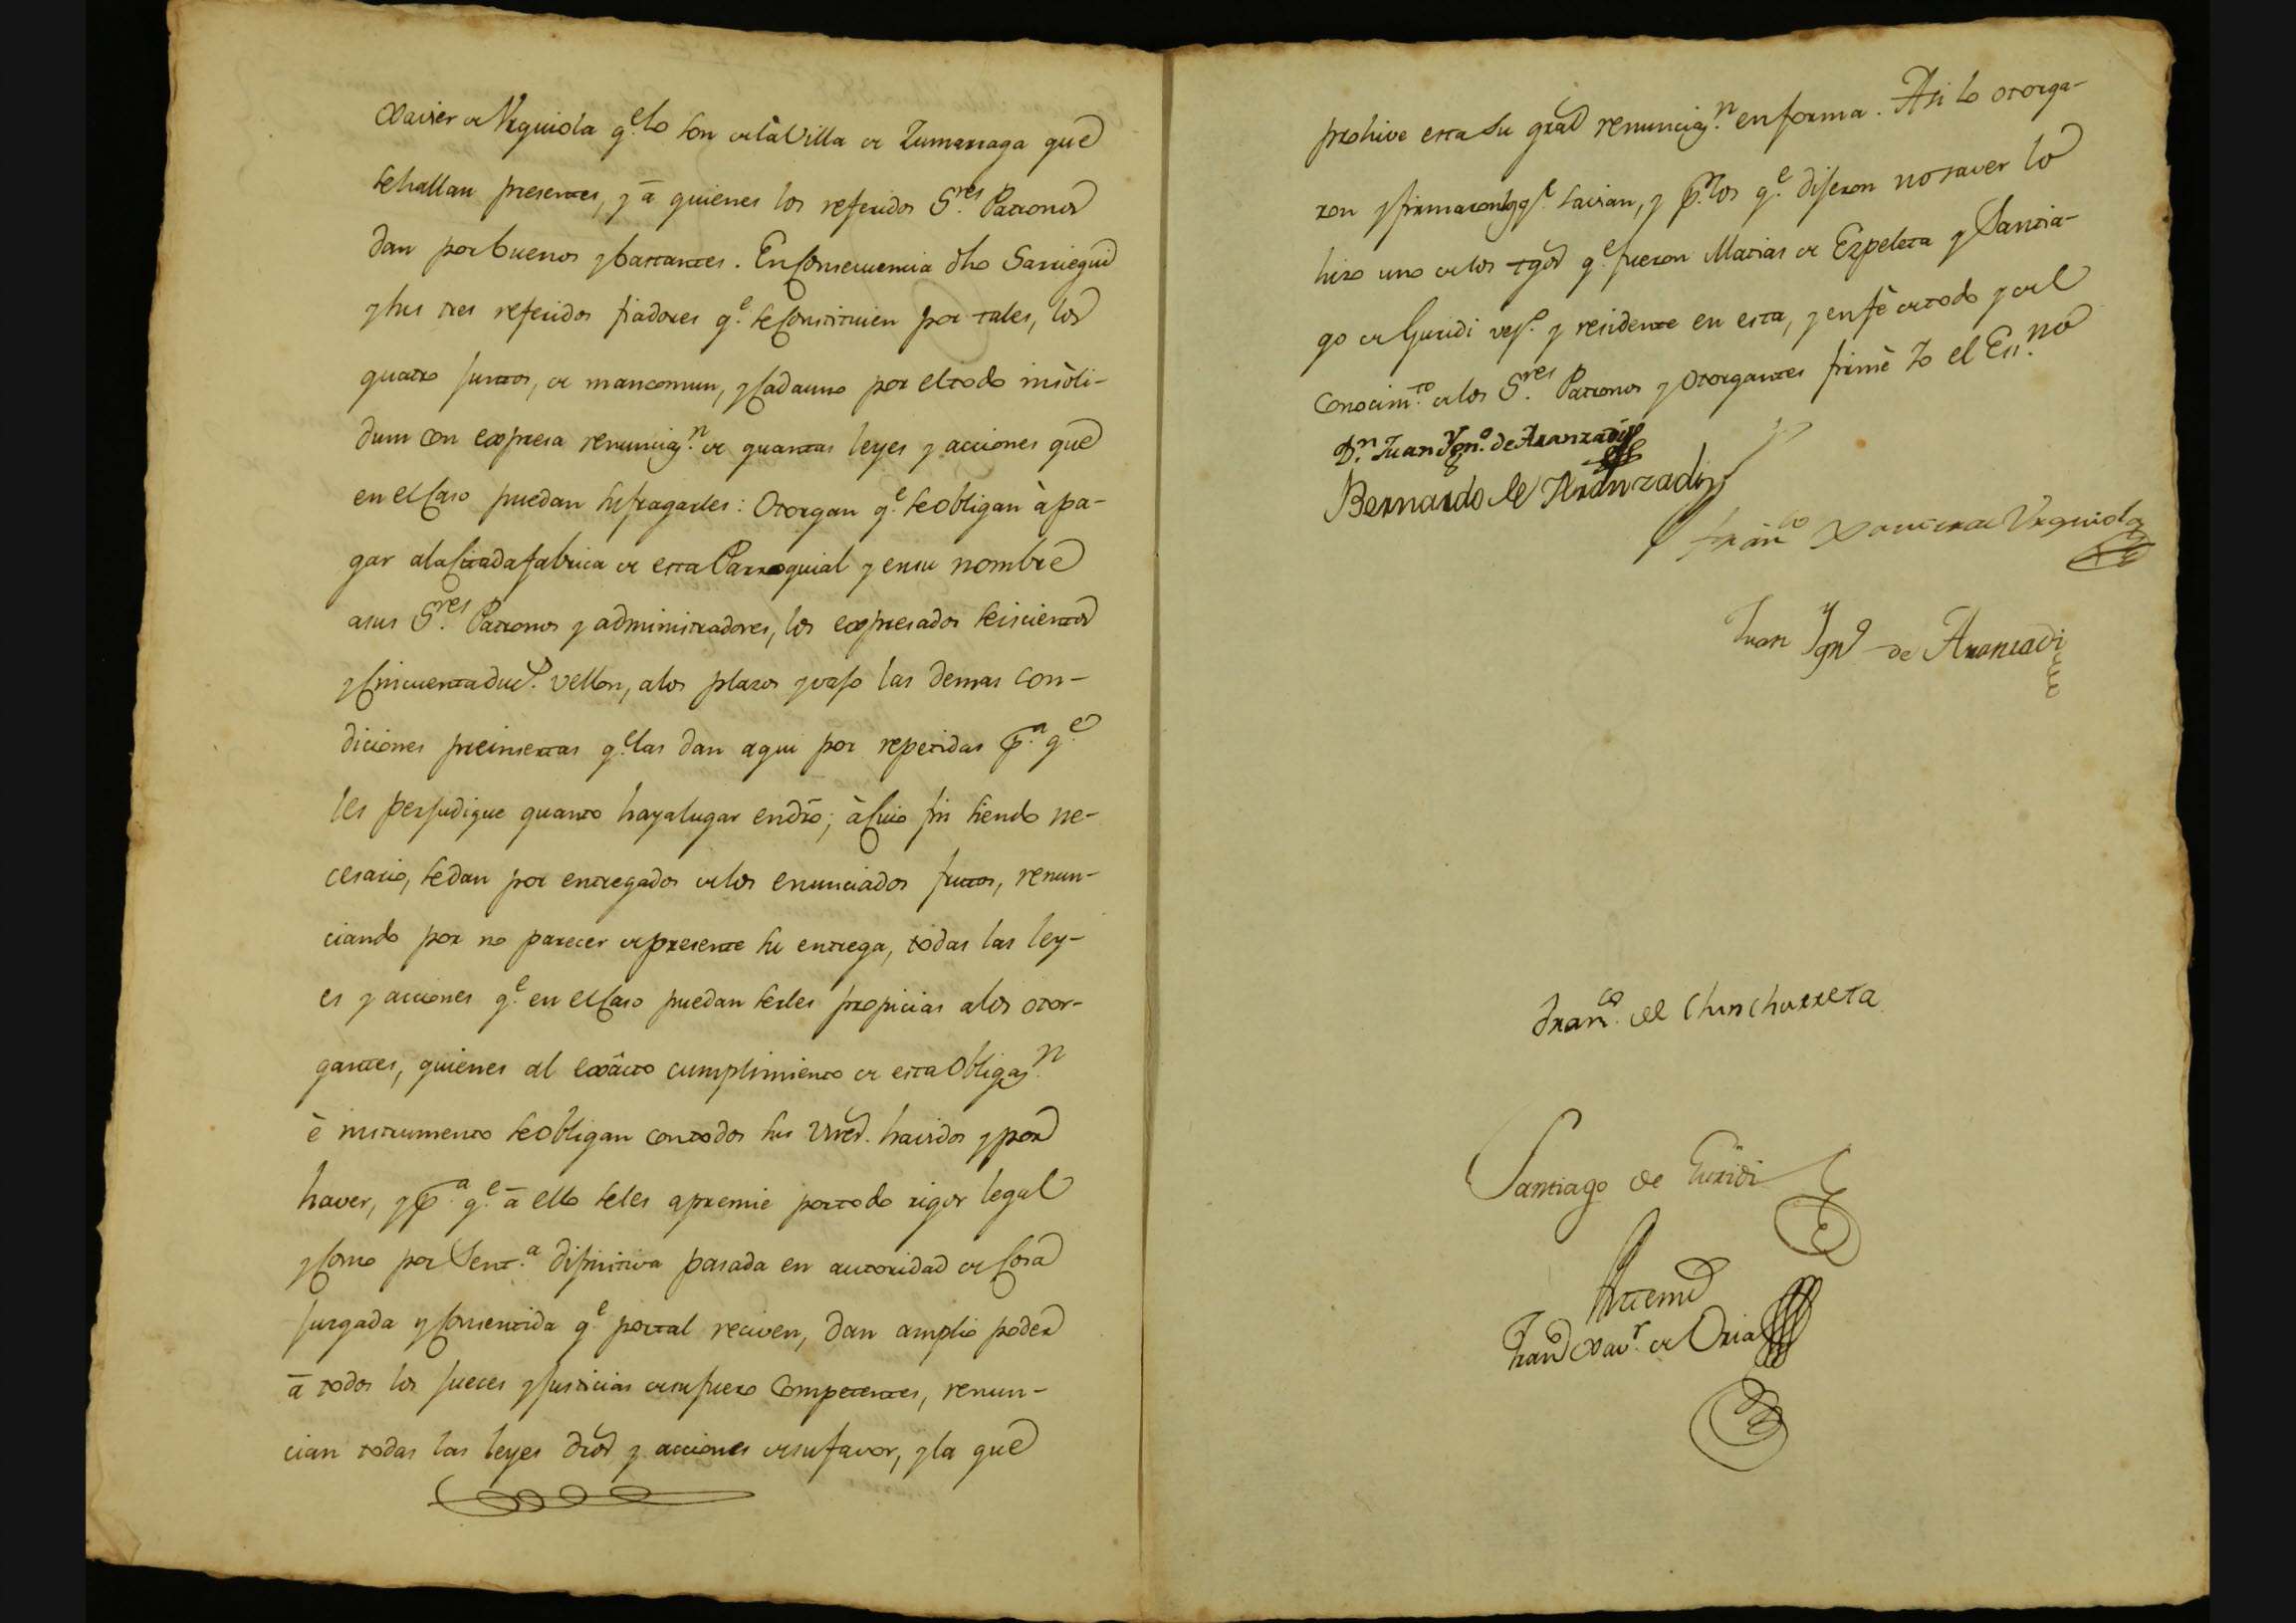 Xavier de Vrquiola q.e lo son de la Villa de Zumarraga que
se hallan presentes, y â quienes los referidos S.res Patronos
dan por buenos y bastantes. En Consequencia dho Sasiegui
y sus tres referidos fiadores q.e se Constituien por tales, los
quatro juntos, de mancomun, y Cada uno por el todo insòli-
dum con expresa renunciaz.n de quantas leyes y acciones que
en el Caso puedan sufragarles: Otorgan q.e se obligan à pa-
gar a la Citada fabrica de esta Parroquial y en su nombre
a sus S.res Patronos y administradores, los expresados seiscientos
y Cincuenta duc.s vellon, a los plazos y vajo las demas con-
diciones preinsertas q.e las dan aqui por repetidas p.a q.e
les perjudique quanto haya lugar en dro; à Cuio fin siendo ne-
cesario, se dan por entregados de los enunciados frutos, renun-
ciando por no parecer de presente su entrega, todas las ley-
es y acciones q.e en el Caso puedan serles propicias a los otor-
gantes, quienes al exâcto cumplimiento de esta Obligaz.n
è instrumento se obligan con todos sus vnes. havidos y por
haver, y p.a q.e â ello se les apremie por todo rigor legal
y Como por Sent.a difinitiva pasada en autoridad de Cosa
juzgada y Consentida q.e por tal reciven, dan amplio poder
â todos los jueces y justicias de su fuero Competentes, renun-
cian todas las leyes dros y acciones de su favor, y la que
prohive esta su gral renunciaz.n en forma. Asi lo otorga-
ron y firmaron los q.e savian, y p.r los q.e dijeron no saver lo
hizo uno de los tgos q.e fueron Matias de Ezpeleta y Santia-
go de Guridi vez.s y residente en esta, y en fè de todo y del
Conocim.to de los S.res Patronos y Otorgantes firmè Yo el Ess.no
D.n Juan Ygn.o de Aranzadi
Bernardo de Aranzadi
Fran.co Xavier de Vrquiola
Juan Ygn.o de Aranzadi
Fran.co de Chinchurreta
Santiago de Guridi
Antemi
Fran.co Xav.r de Oria